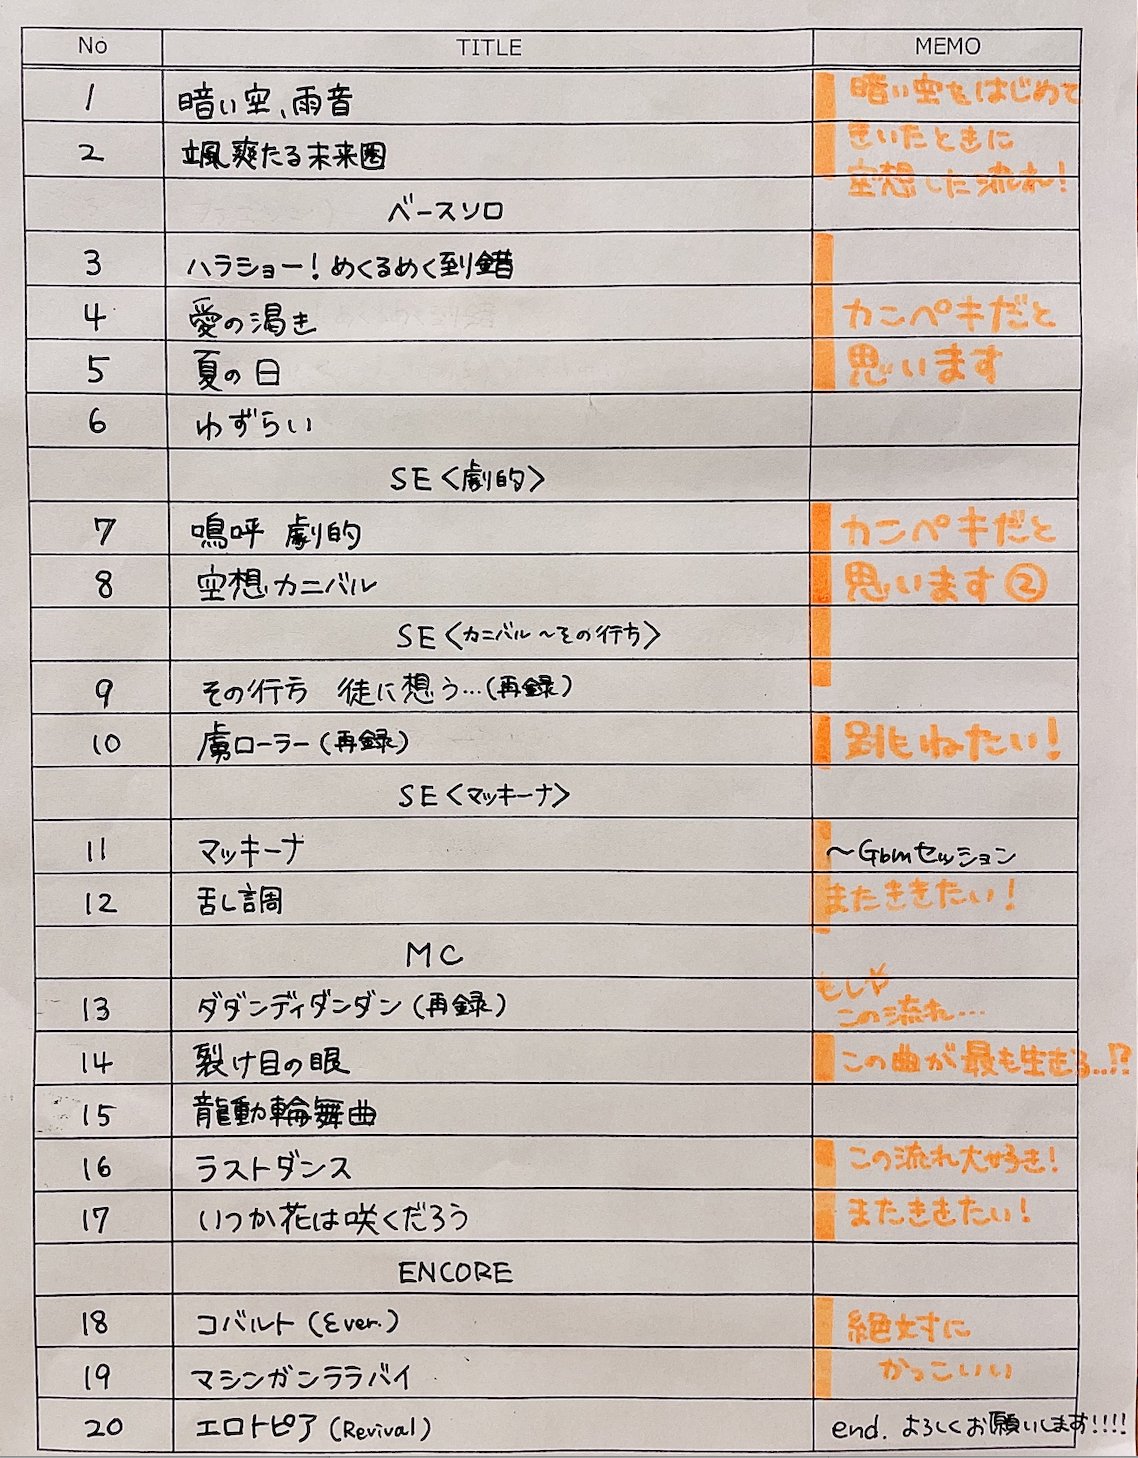 No TITLE MEMO
1 暗い空、雨音 暗い空をはじめて
2 颯爽たる未来圏 きいたときに
空想した流れ!
ベースソロ
3 ハラショー!めくるめく倒錯
4 愛の渇き カンペキだと
5 夏の日 思います
6 わずらい
SE<劇的>
7 嗚呼 劇的 カンペキだと
8 空想カニバル 思います②
SE<カニバル~その行方>
9 その行方 徒に想う…(再録)
10 虜ローラー(再録) 跳ねたい!
SE<マッキーナ>
11 マッキーナ ~Gbmセッション
12 舌し調 またききたい!
MC
もしや
13 ダダンディダンダン(再録) この流れ…
14 裂け目の眼 この曲が最も生きる..!?
15 龍動輪舞曲
16 ラストダンス この流れ大好き!
17 いつか花は咲くだろう またききたい!
ENCORE
18 コバルト(Ɛver.) 絶対に
19 マシンガンララバイ かっこいい
20 エロトピア(Revival) end. よろしくお願いします!!!!